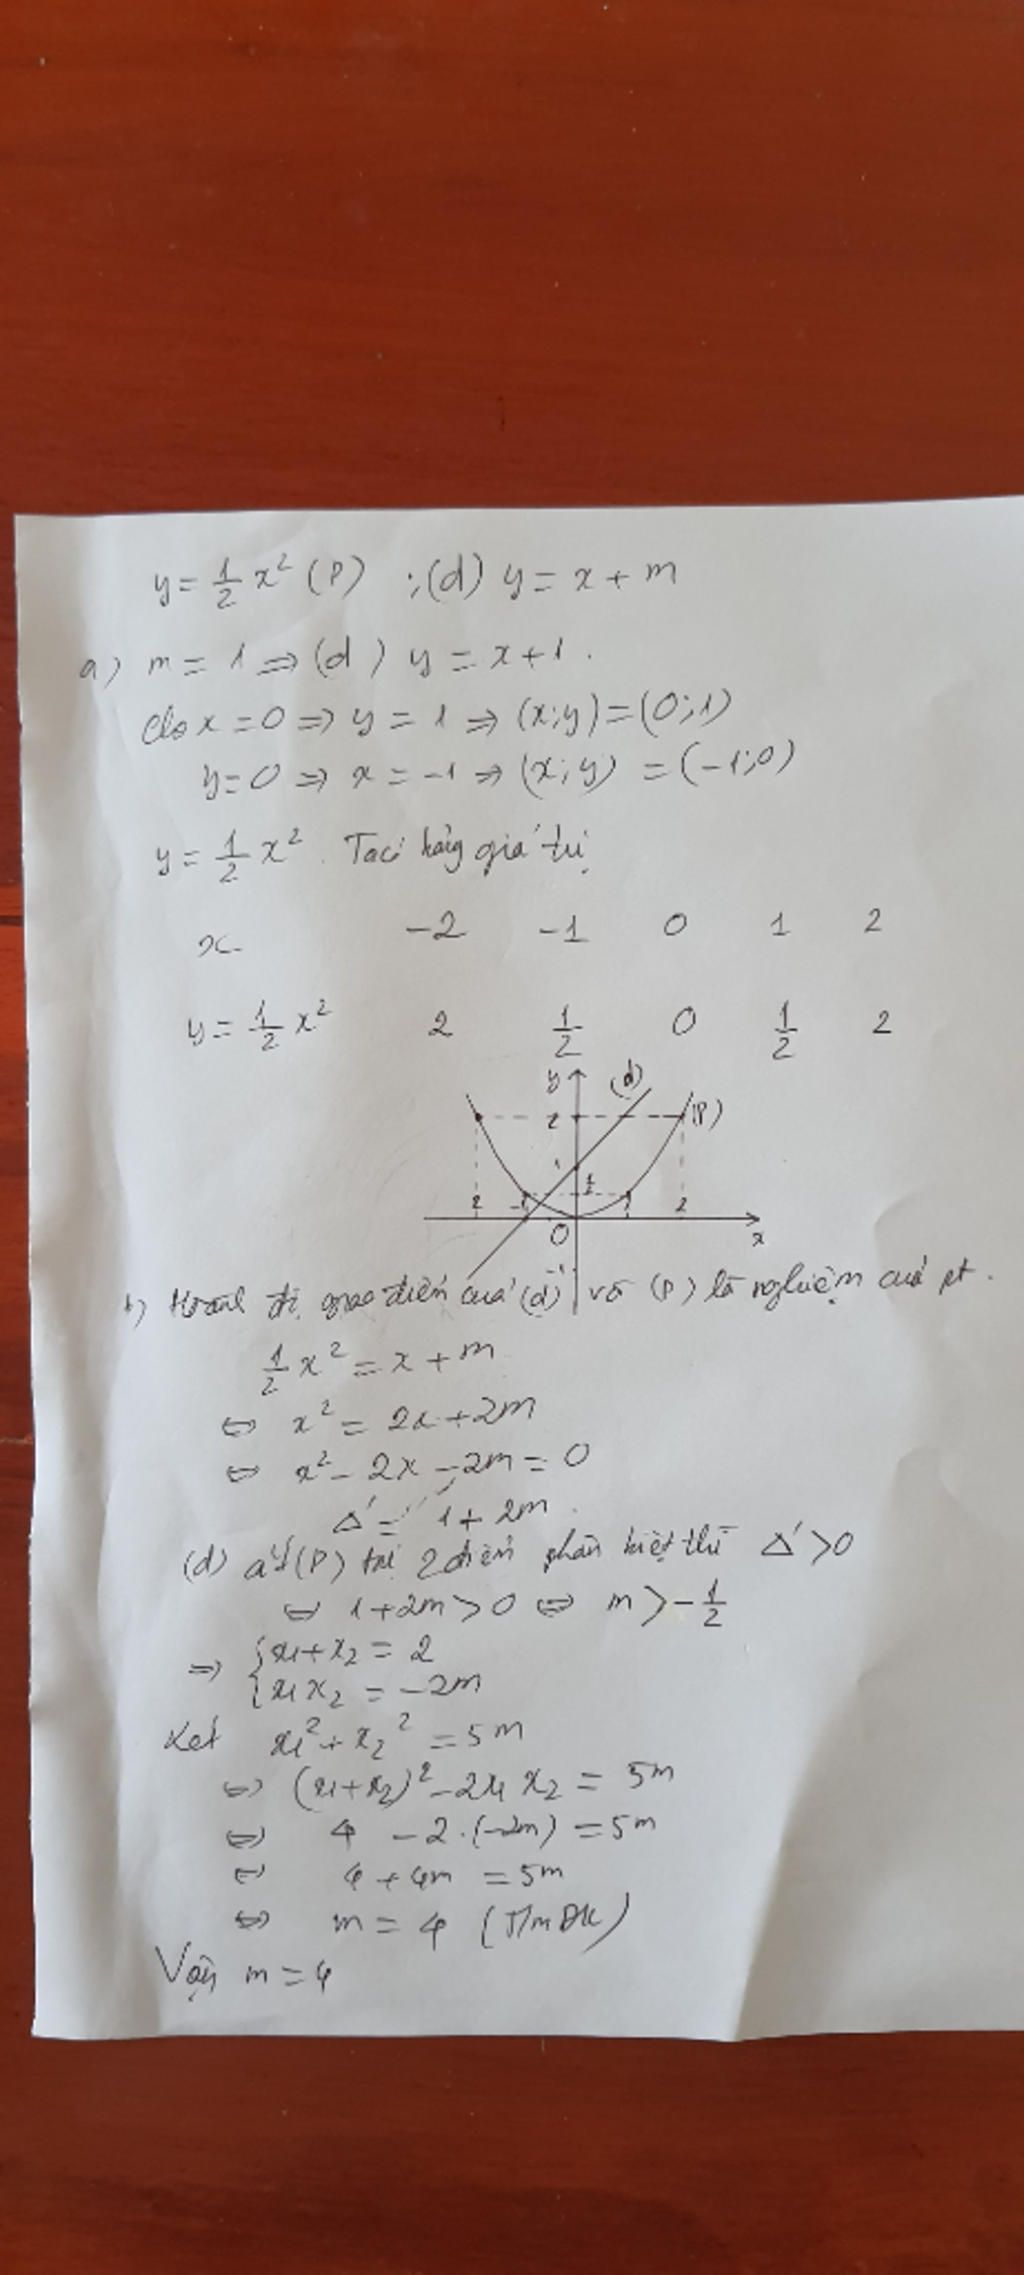 y = 1/2 x² (P) ; (d) y = x + m
a) m = 1 => (d) y = x + 1.
Cho x = 0 => y = 1 => (x;y) = (0;1)
y = 0 => x = -1 => (x;y) = (-1;0)
y = 1/2 x². Ta có bảng giá trị
x -2 -1 0 1 2
y = 1/2 x² 2 1/2 0 1/2 2
y (d)
2 (P)
1 1/2
2 -1 1 2
O x
-1
b) Hoành độ giao điểm của (d) và (P) là nghiệm của pt.
1/2 x² = x + m
<=> x² = 2x + 2m
<=> x² - 2x - 2m = 0
Δ' = 1 + 2m.
(d) cắt (P) tại 2 điểm phân biệt thì Δ' > 0
<=> 1 + 2m > 0 <=> m > -1/2
=> { x₁ + x₂ = 2
x₁x₂ = -2m
Xét x₁² + x₂² = 5m
<=> (x₁ + x₂)² - 2x₁x₂ = 5m
<=> 4 - 2.(-2m) = 5m
<=> 4 + 4m = 5m
<=> m = 4 (TmĐK)
Vậy m = 4